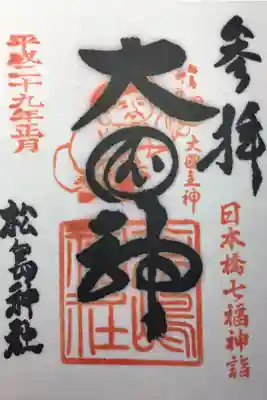 参拝
日本橋七福神詣
大国神
大国主神
平成二十九年正月
松島神社